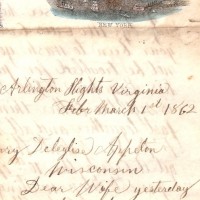 NEW YORK.
Arlington Hights Virginia
Febr March 1st 1862
ary Deleglise Appleton
Wisconsin
Dear Wife yesterday